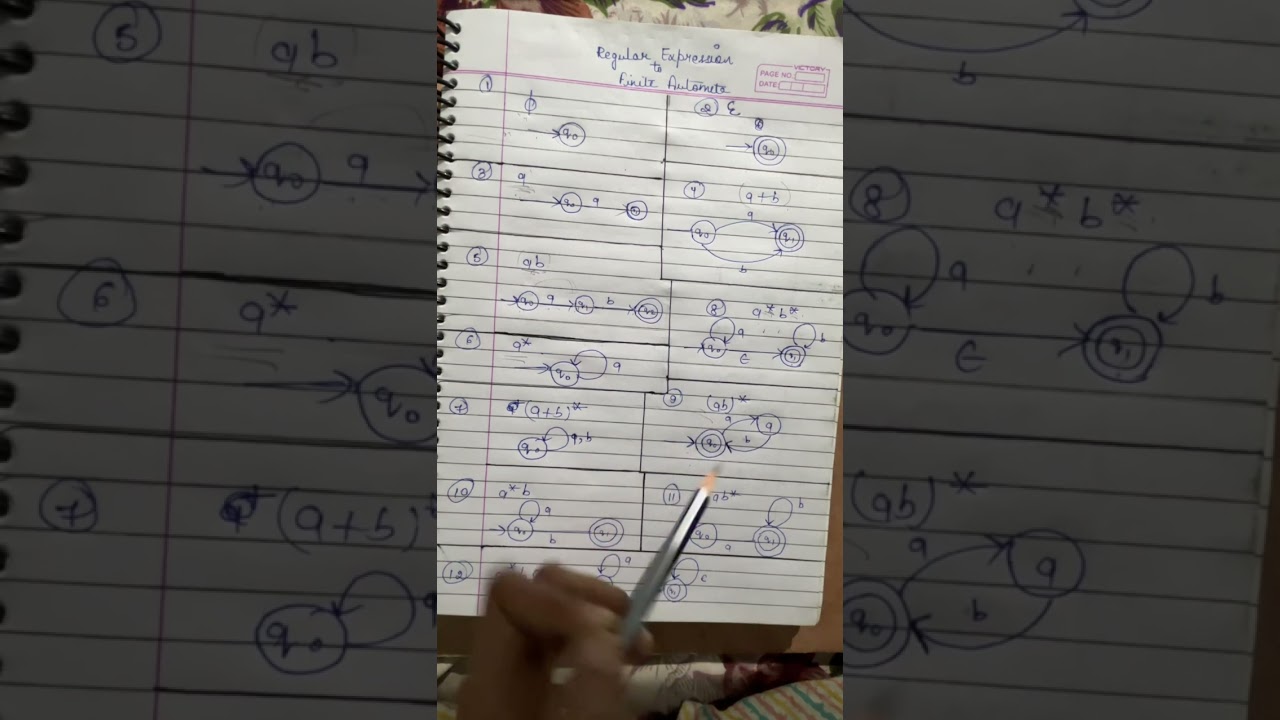 Regular Expression
to
Finite Automata
VICTORY
PAGE NO.
DATE
1 ϕ
q0
2 ε
q0
3 a
q0 a
4 (a+b)
q0 a q1
b
5 ab
q0 a q1 b q2
6 a*
q0 a
7 (a+b)*
q0 a, b
8 a* b*
a b
q0 ϵ q1
9 (ab)*
a q
q0 b
10 a*b
a
q0 b q1
11 ab*
b
q0 a q1
12
a
5 ab
q0 a
6 a*
q0
7 (a+b)
q0
b
8 a* b*
a b
q0 ϵ q1
(ab)*
a q
q0 b